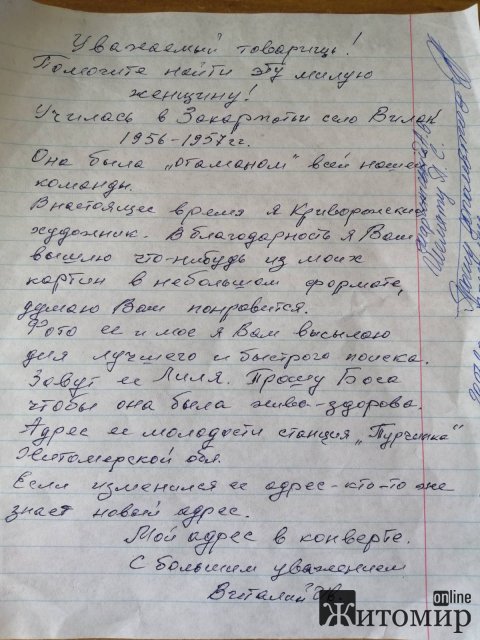 Уважаемый товарищ!
Помогите найти эту милую
женщину!
Училась в Закарпатьи село Вилак
1956-1957 гг.
Она была „отаманом" всей нашей
команды.
В настоящее время я Криворожский
художник. В благодарность я Вам
вышлю что-нибудь из моих
картин в небольшом формате,
думаю Вам понравится.
Фото ее и мое я Вам высылаю
для лучшего и быстрого поиска.
Зовут ее Лиля. Прошу Бога
чтобы она была жива-здорова.
Адрес ее молодости станция „Турчинка"
Житомерской обл.
Если изменился ее адрес - кто-то же
знает новый адрес.
Мой адрес в конверте.
С большим уважением
Виталий
Житомир online